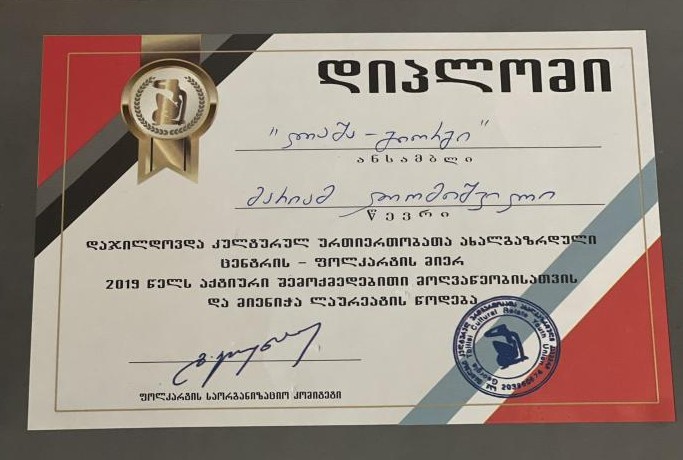 დიპლომი
"ლაშა-გიორგი"
ანსამბლი
მარიამ
წევრი
დაჯილდოვდა კულტურულ ურთიერთობათა ახალგაზრდული
ცენტრის – ფოლკარტის მიერ
2019 წელს აქტიური შემოქმედებითი მოღვაწეობისათვის
და მიენიჭა ლაურეატის წოდება
ფოლკარტის საორგანიზაციო კომიტეტი
Tbilisi Cultural Relate Youth Union
Georgia